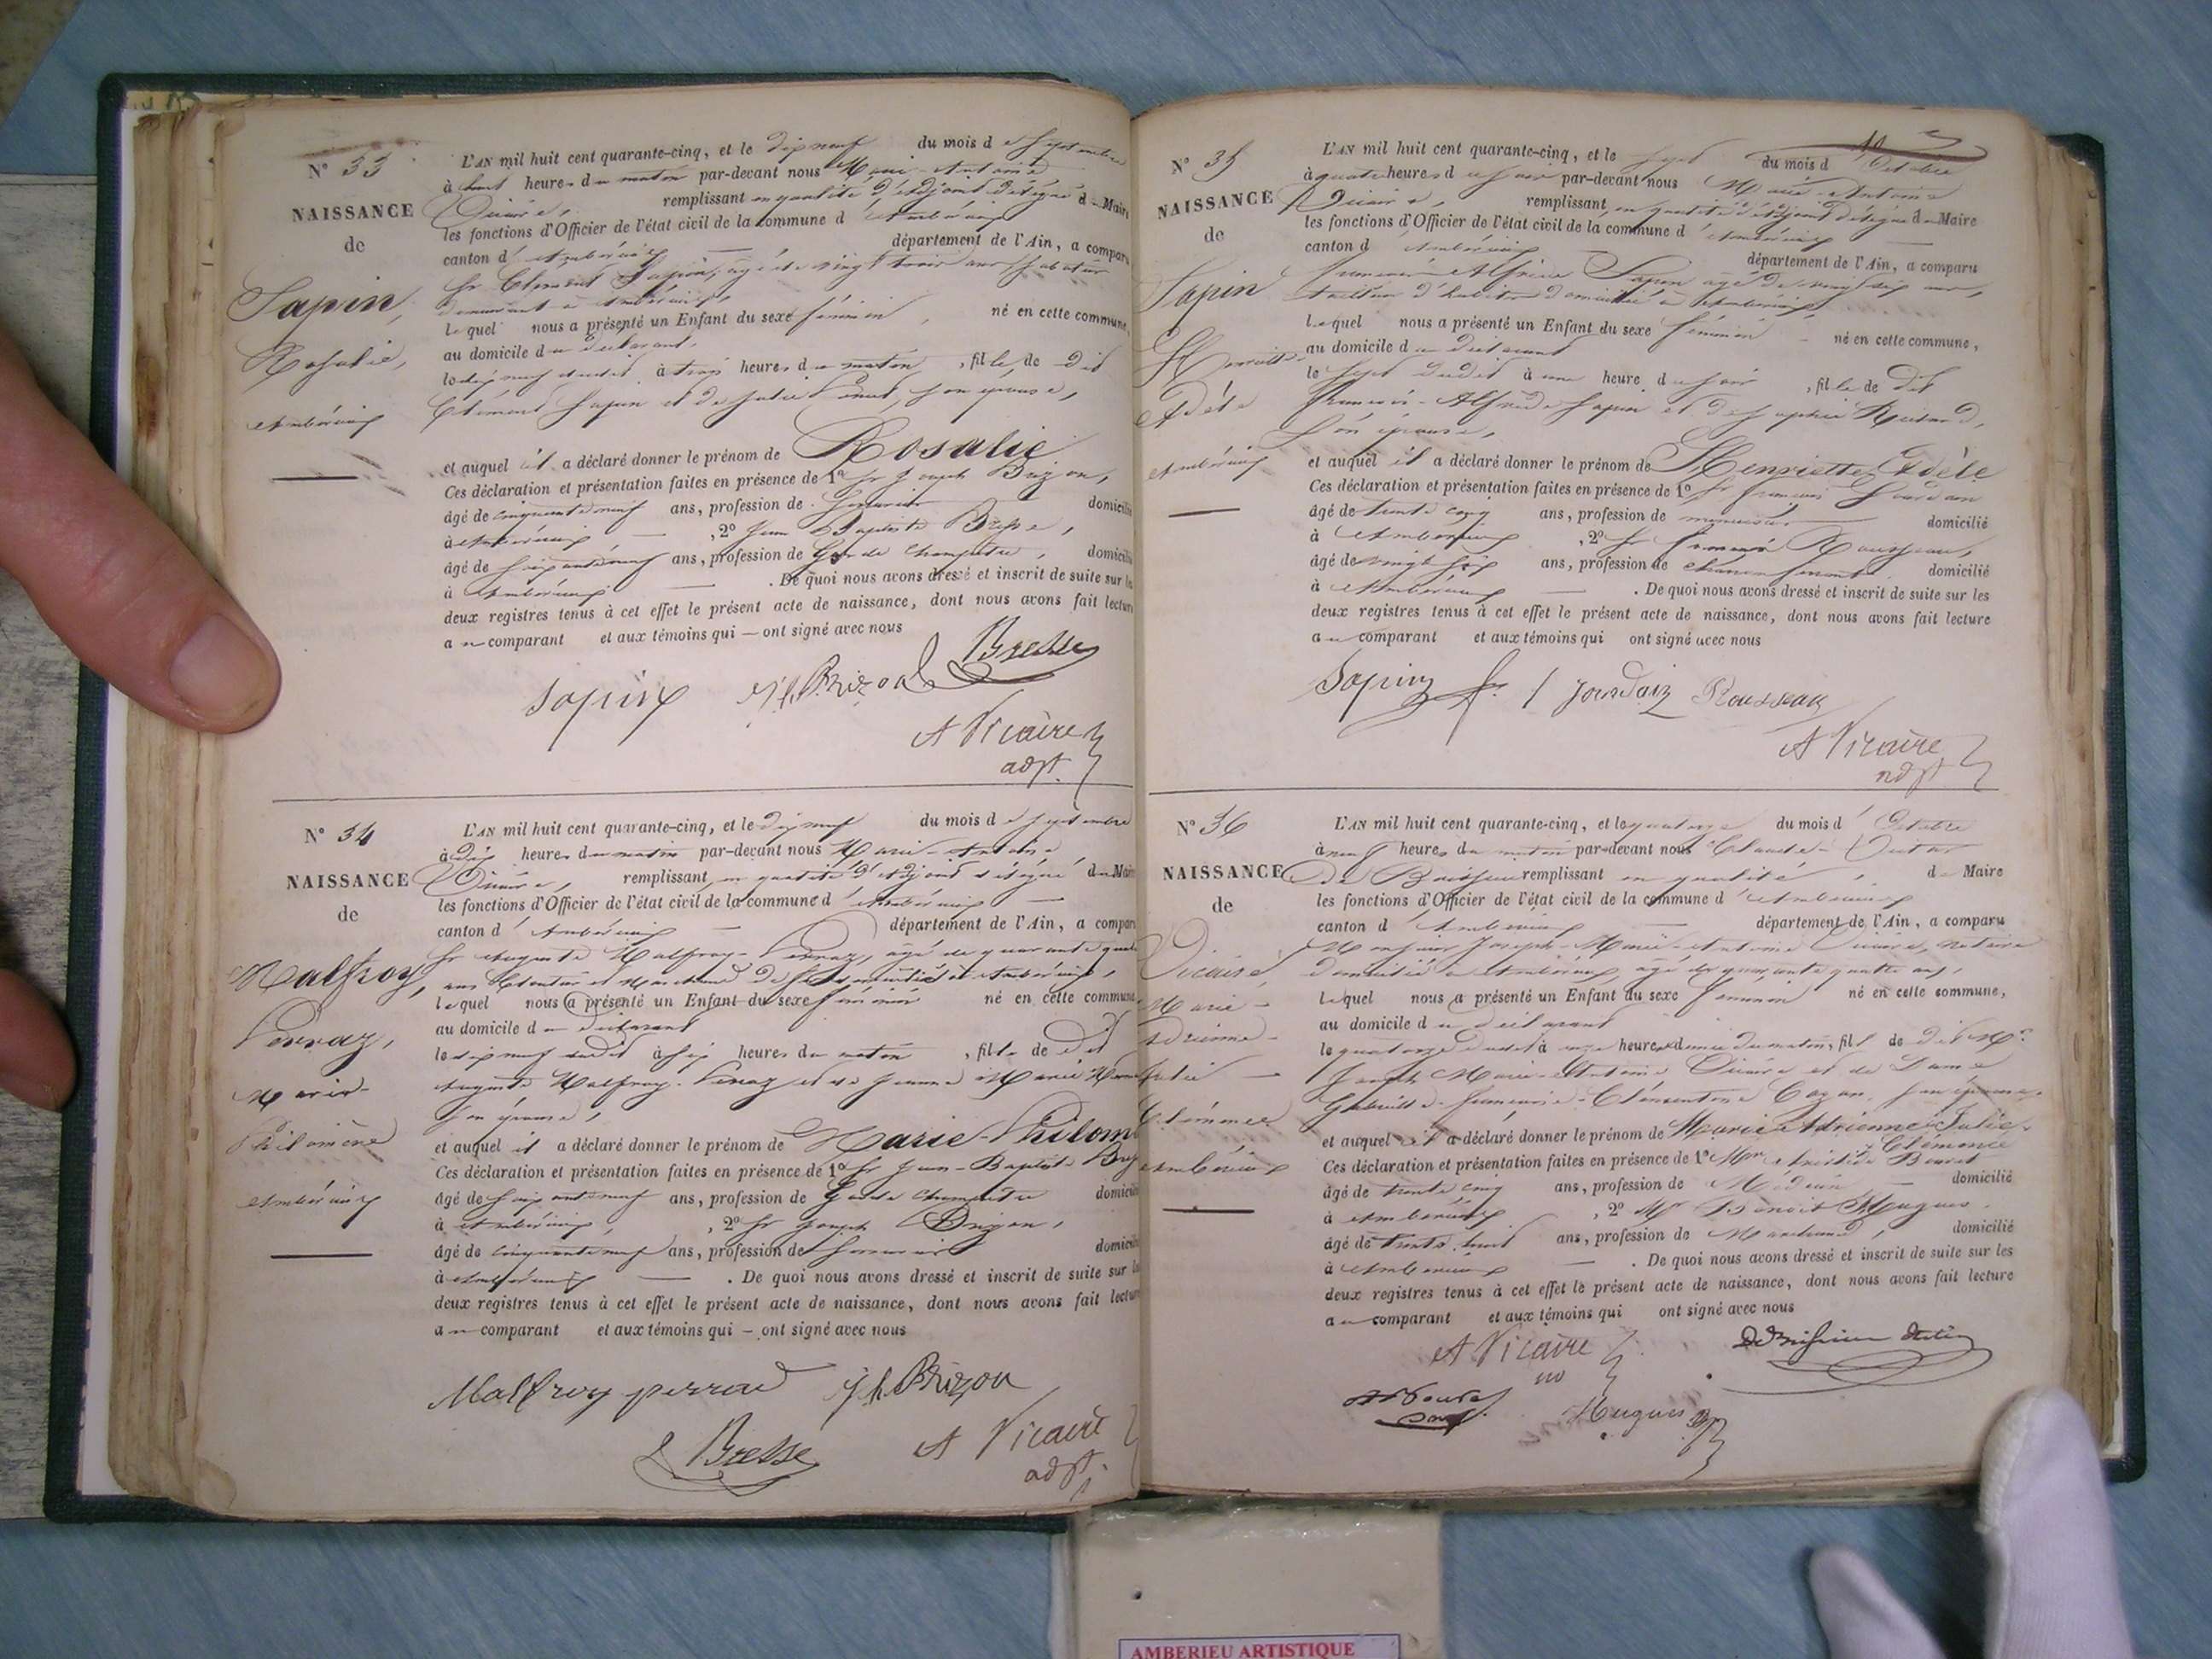 N° 33
NAISSANCE
de
Sapin,
Rosalie,
Ambérieux
L'AN mil huit cent quarante-cinq, et le dix neuf du mois de Septembre
à huit heures du matin par-devant nous Marie-Antoine
Vicaire, remplissant en qualité d'adjoint délégué du Maire
les fonctions d'Officier de l'état civil de la commune d'Ambérieux
canton d'Ambérieux département de l'Ain, a comparu
Sr Clément Sapin, âgé de vingt trois ans,
demeurant à Ambérieux
lequel nous a présenté un Enfant du sexe féminin, né en cette commune,
au domicile du déclarant,
le dix neuf dudit à trois heures du matin, fille de dit
Clément Sapin et de Julie son épouse,
et auquel il a déclaré donner le prénom de Rosalie
Ces déclaration et présentation faites en présence de 1° Sr Joseph Brizon,
âgé de cinquante neuf ans, profession de domicilié
à Ambérieux, 2° Jean Baptiste Bresse,
âgé de soixante neuf ans, profession de Garde champêtre, domicilié
à Ambérieux . De quoi nous avons dressé et inscrit de suite sur les
deux registres tenus à cet effet le présent acte de naissance, dont nous avons fait lecture
au comparant et aux témoins qui — ont signé avec nous
Sapin Jh Brizon Bresse
A Vicaire
adjt.
N° 34
NAISSANCE
de
Malfroy,
Perraz,
Marie-
Philomène
Ambérieux
L'AN mil huit cent quarante-cinq, et le dix neuf du mois de Septembre
à dix heures du matin par-devant nous Marie-Antoine
Vicaire, remplissant en qualité d'adjoint délégué du Maire
les fonctions d'Officier de l'état civil de la commune d'Ambérieux
canton d'Ambérieux département de l'Ain, a comparu
Sr Auguste Malfroy-Perraz, âgé de quarante
ans domicilié à Ambérieux,
lequel nous a présenté un Enfant du sexe féminin né en cette commune
au domicile du déclarant
le dix neuf dudit à six heures du matin, fille de dit
Auguste Malfroy-Perraz et de Jeanne Marie
son épouse,
et auquel il a déclaré donner le prénom de Marie-Philom
Ces déclaration et présentation faites en présence de 1° Sr Jean-Baptiste
âgé de soixante neuf ans, profession de Garde champêtre domicilié
à Ambérieux, 2° Sr Joseph Brizon,
âgé de cinquante neuf ans, profession de domicilié
à Ambérieux . De quoi nous avons dressé et inscrit de suite sur les
deux registres tenus à cet effet le présent acte de naissance, dont nous avons fait lecture
au comparant et aux témoins qui — ont signé avec nous
Malfroy perraz Jh Brizon
Bresse A Vicaire
adjt.
N° 35
NAISSANCE
de
Sapin
Henriette
Adèle
Ambérieux
L'AN mil huit cent quarante-cinq, et le sept du mois d'Octobre
à quatre heures du soir par-devant nous Marie-Antoine
Vicaire, remplissant en qualité d'adjoint délégué du Maire
les fonctions d'Officier de l'état civil de la commune d'Ambérieux
canton d'Ambérieux département de l'Ain, a comparu
François-Alfred Sapin âgé de vingt six ans,
tailleur d'habits domicilié à Ambérieux,
lequel nous a présenté un Enfant du sexe féminin né en cette commune,
au domicile du déclarant
le sept dudit à une heure du soir, fille de dit
François-Alfred Sapin et de Sophie
son épouse,
et auquel il a déclaré donner le prénom de Henriette Adèle
Ces déclaration et présentation faites en présence de 1° Sr François Jourdain
âgé de trente cinq ans, profession de menuisier domicilié
à Ambérieux, 2° Sr François Rousseau,
âgé de vingt six ans, profession de domicilié
à Ambérieux . De quoi nous avons dressé et inscrit de suite sur les
deux registres tenus à cet effet le présent acte de naissance, dont nous avons fait lecture
au comparant et aux témoins qui ont signé avec nous
Sapin f. Jourdain Rousseau
A Vicaire
adjt
N° 36
NAISSANCE
de
Vicaire,
Marie-
Adrienne-
Julie
Clémence
Ambérieux
L'AN mil huit cent quarante-cinq, et le quatorze du mois d'Octobre
à neuf heures du matin par-devant nous Claude-
remplissant en qualité, de Maire
les fonctions d'Officier de l'état civil de la commune d'Ambérieux
canton d'Ambérieux département de l'Ain, a comparu
Monsieur Joseph-Marie-Antoine Vicaire, notaire
domicilié à Ambérieux, âgé de quarante quatre ans,
lequel nous a présenté un Enfant du sexe féminin né en cette commune,
au domicile du déclarant
le quatorze dudit à heures demie du matin, fil de dit Mr
Joseph Marie-Antoine Vicaire et de Dame
Clémentine son épouse,
et auquel il a déclaré donner le prénom de Marie Adrienne Julie
Clémence
Ces déclaration et présentation faites en présence de 1° Aristide
âgé de trente cinq ans, profession de Médecin domicilié
à Ambérieux, 2° Mr Benoit Hugues,
âgé de trente huit ans, profession de Marchand, domicilié
à Ambérieux . De quoi nous avons dressé et inscrit de suite sur les
deux registres tenus à cet effet le présent acte de naissance, dont nous avons fait lecture
au comparant et aux témoins qui ont signé avec nous
A Vicaire
Hugues
AMBERIEU ARTISTIQUE